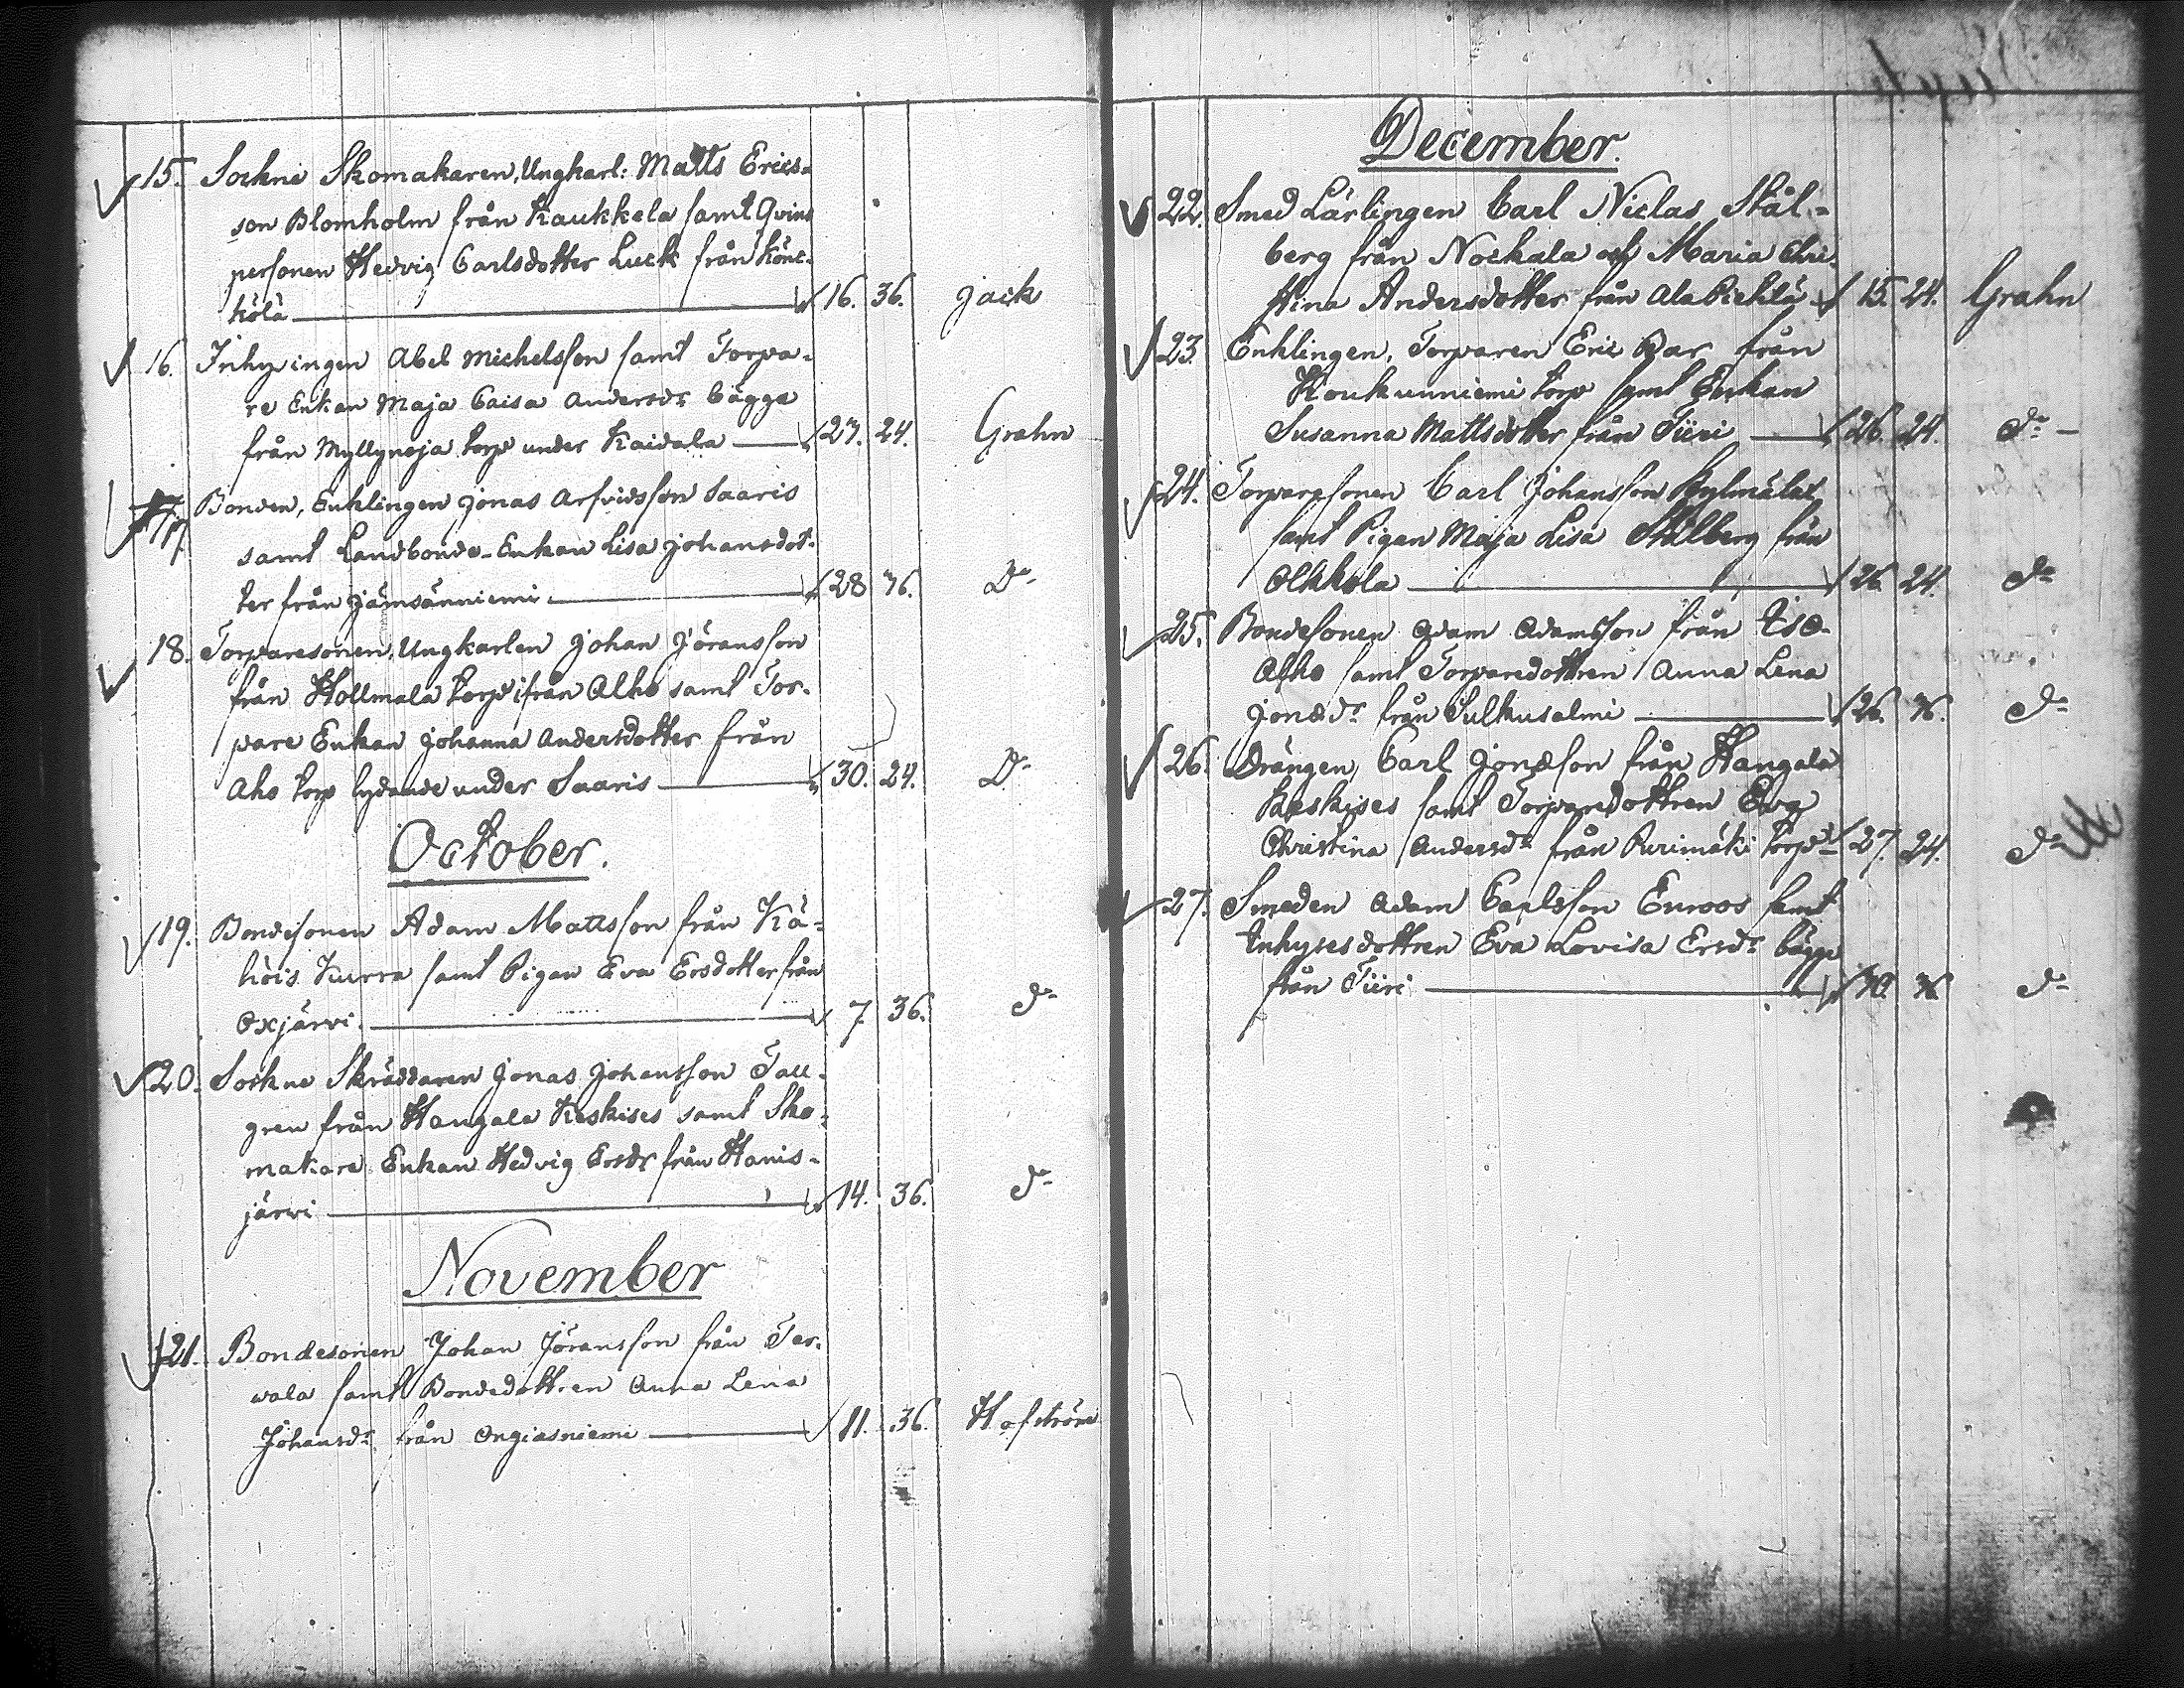 15. Sockne Skomakaren, Ungkarl: Matts Erics-
son Blomholm från Kaukkela samt Qvins
personen Hedvig Carlsdotter Luck från Könt-
kölä 16. 36. Jack
16. Inhysingen Abel Michelsson samt Torpa-
re Enkan Maja Caisa Andersdr bägge
från Myllynoja torp under Kaivala 27. 24. Grahn
17. Bonden, Enklingen Jonas Arfvidsson Saaris
samt Landbonde-Enkan Lisa Johansdot-
ter från Jämsänniemi 28 36. Do
18. Torparesonen, Ungkarlen Johan Jöransson
från Hollmala torp ifrån Alho samt Tor-
pare Enkan Johanna Andersdotter från
Aho torp lydande under Saaris 30. 24. Do
October.
19. Bondesonen Adam Mattsson från Kä-
höis Kurra samt Pigan Eva Ersdotter från
Oxjärvi 7. 36. do
20. Sockne Skräddaren Jonas Johansson Tall-
gren från Hangala Keskises samt Sko-
makare Enkan Hedvig Ersdr från Hanis-
järvi 14. 36. do
November
21. Bondesonen Johan Jöransson från Ter-
vala samt Bondedottren Anna Lena
Johansdr från Ongiasniemi 11. 36. Hofström
December.
22. Smed Lärlingen Carl Niclas Stål-
berg från Nockala och Maria Chri-
stina Andersdotter från Ala Pichlä 15. 24. Grahn
23. Enklingen, Torparen Eric Bar från
Houkunniemi torp samt Enkan
Susanna Mattsdotter från Tiiri 26. 24. do
24. Torparesonen Carl Johansson Kylmälät
samt Pigan Maja Lisa Stålberg från
Alkkola 26. 24. do
25. Bondesonen Adam Adamsson från Iso-
Alho samt Torparedottren Anna Lena
Jonædr från Sulkusalmi 26. 36. do
26. Drängen, Carl Jonæson från Hangala
Keskises samt Torparedottren Eva
Christina Andersdr från Purimäki torp 27. 24. do
27. Smeden Adam Carlsson Enroos samt
Inhysesdottren Eva Lovisa Ersdr bägge
från Tiiri 30. 36 do